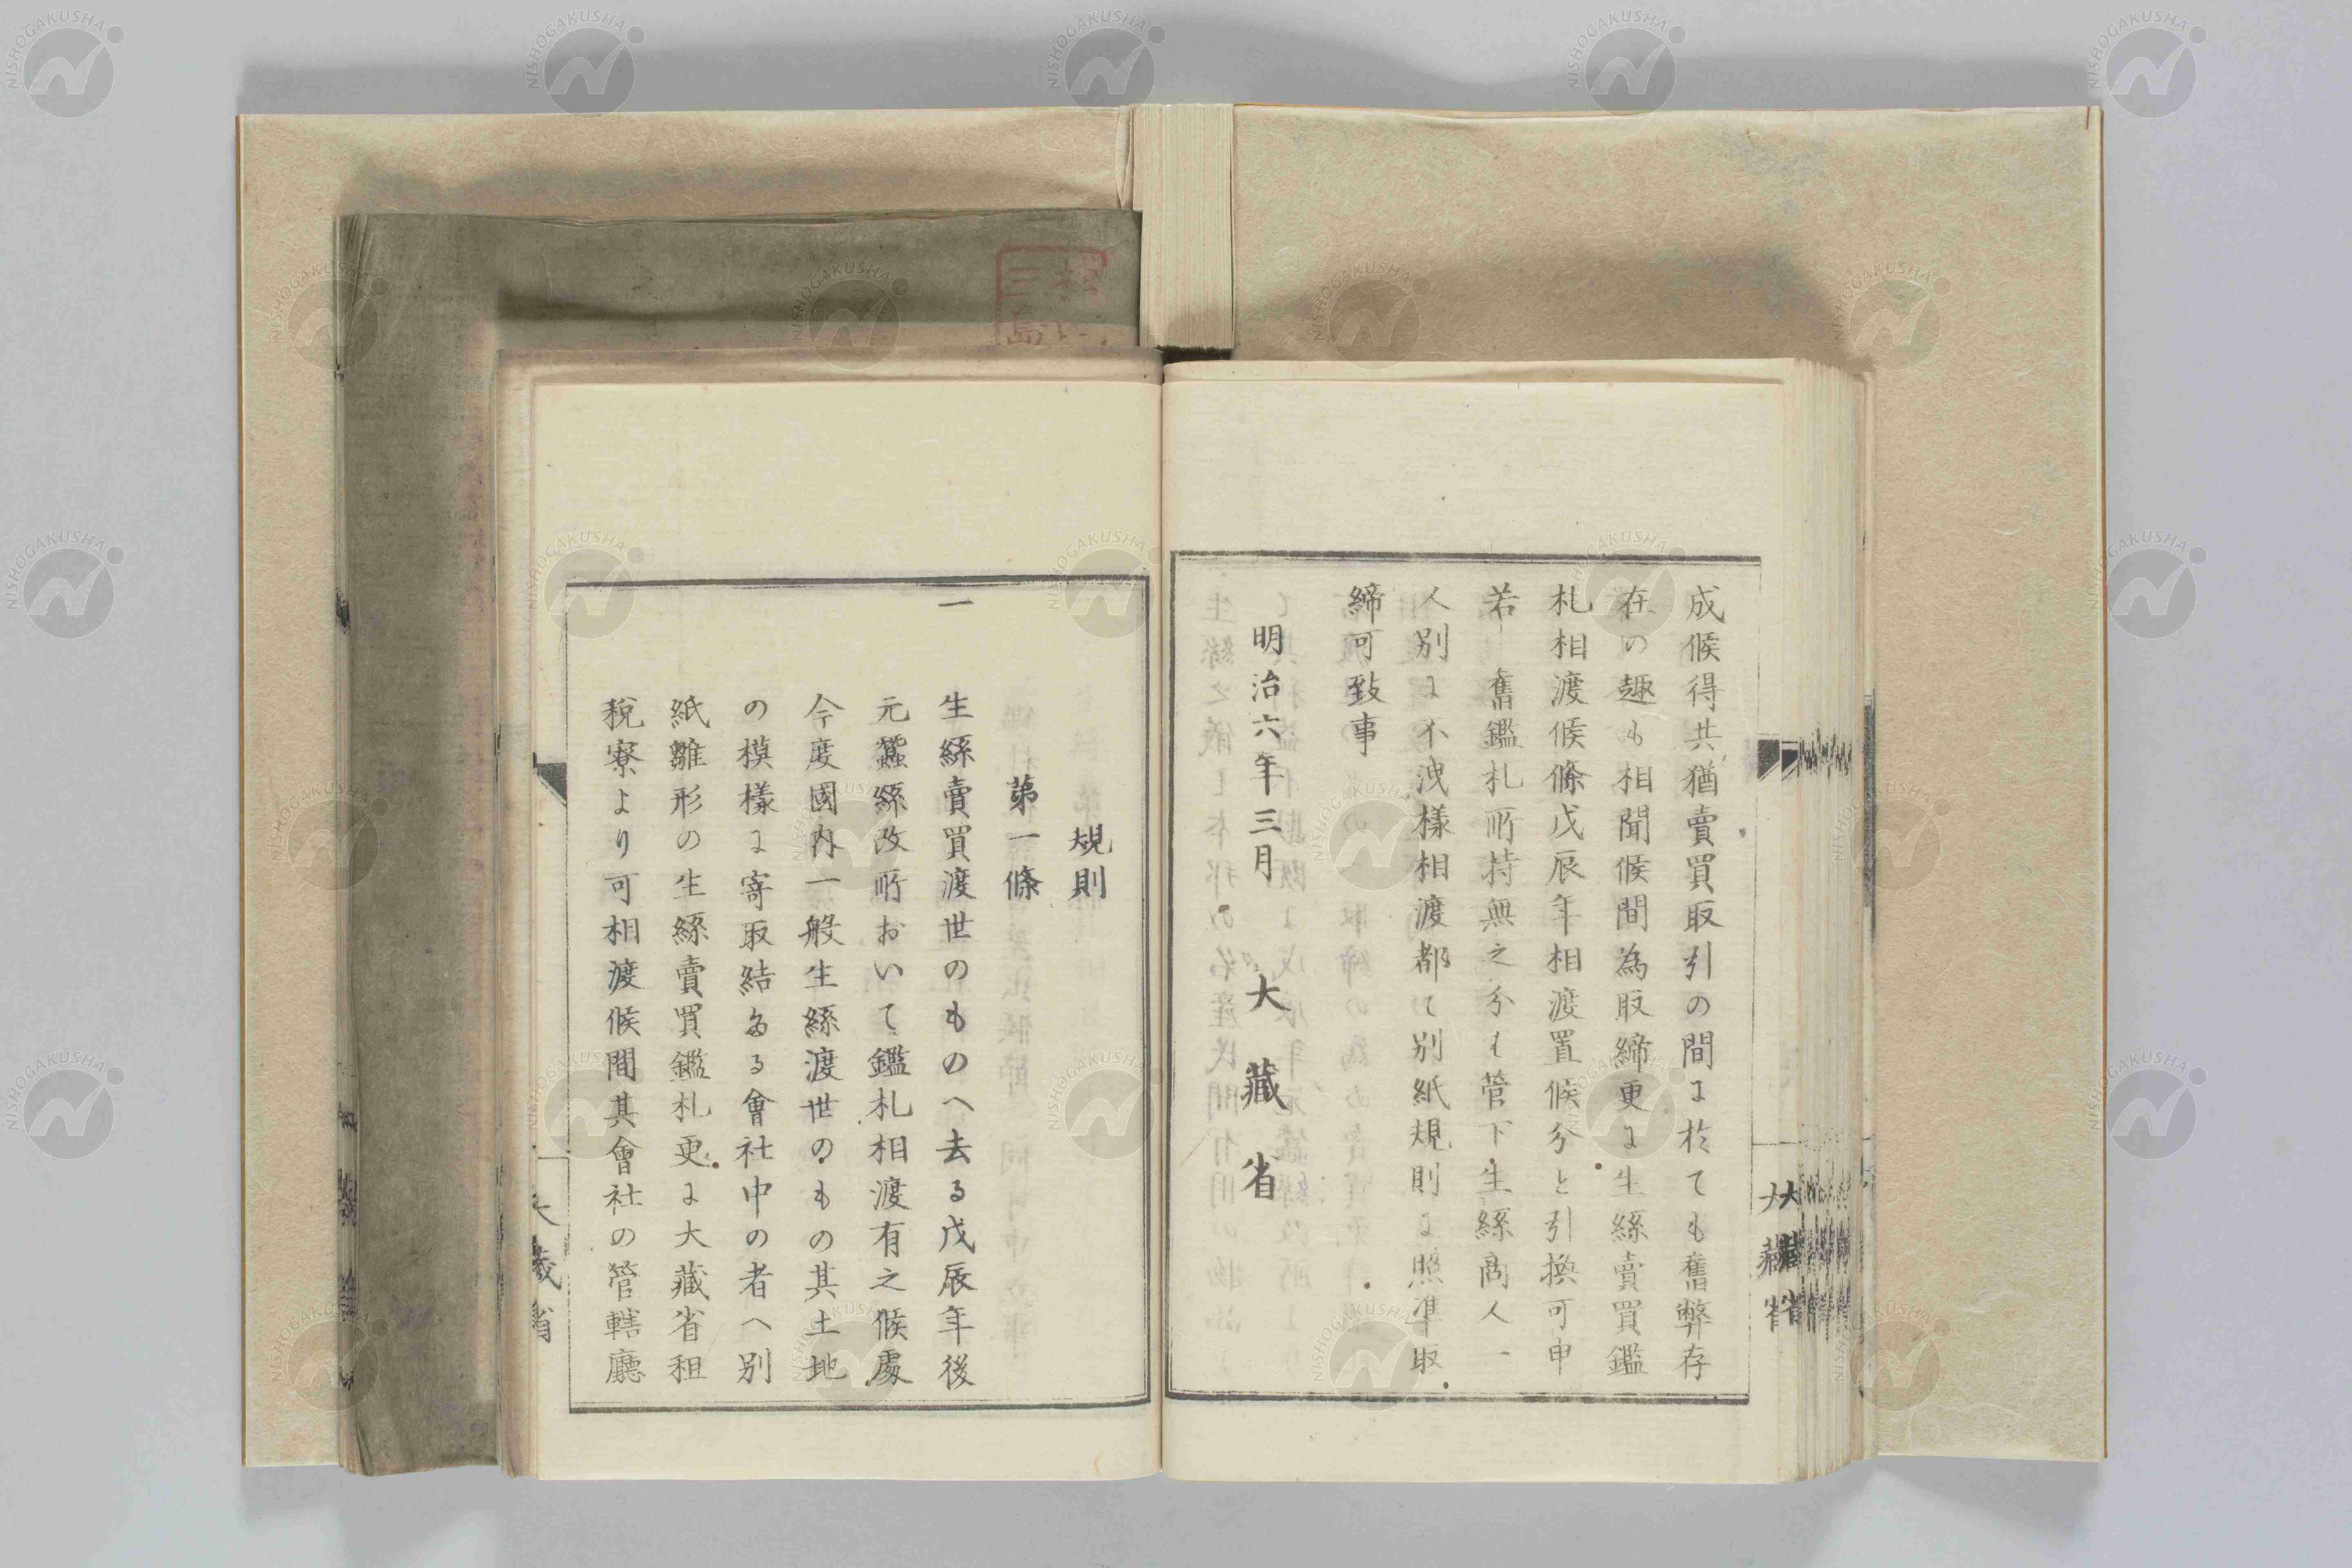 成候得共猶賣買取引の間に於ても舊弊存
在の趣も相聞候間為取締更に生絲賣買鑑
札相渡候條戊辰年相渡置候分と引換可申
若舊鑑札所持無之分も管下生絲商人一
人別に不洩樣相渡都て別紙規則に照準取
締可致事
明治六年三月 大藏省
大藏省
規則
第一條
一 生絲賣買渡世のものへ去る戊辰年後
元蠶絲改所おいて鑑札相渡有之候處
今度國内一般生絲渡世のもの其土地
の模樣に寄取結たる會社中の者へ別
紙雛形の生絲賣買鑑札更に大藏省租
稅寮より可相渡候間其會社の管轄廳
大藏省
三島
NISHOGAKUSHA